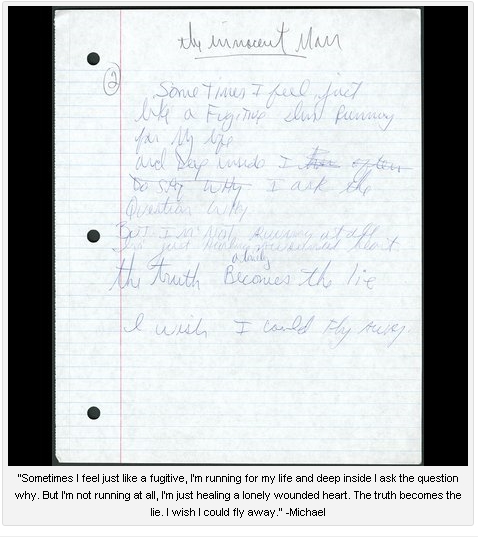 the innocent Man
2
Sometimes I feel just
like a Fugitive Im Running
for My life
and Deep inside I often
Do say Why I ask the
Question Why
But I'm Not Running at all
I'm just Healing wounded heart
a lonely
the truth Becomes the lie
I wish I could Fly away.
"Sometimes I feel just like a fugitive, I'm running for my life and deep inside I ask the question
why. But I'm not running at all, I'm just healing a lonely wounded heart. The truth becomes the
lie. I wish I could fly away." -Michael